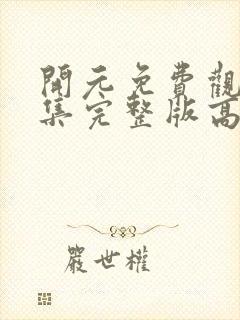 開元免費觀
集完整版高
嚴世權